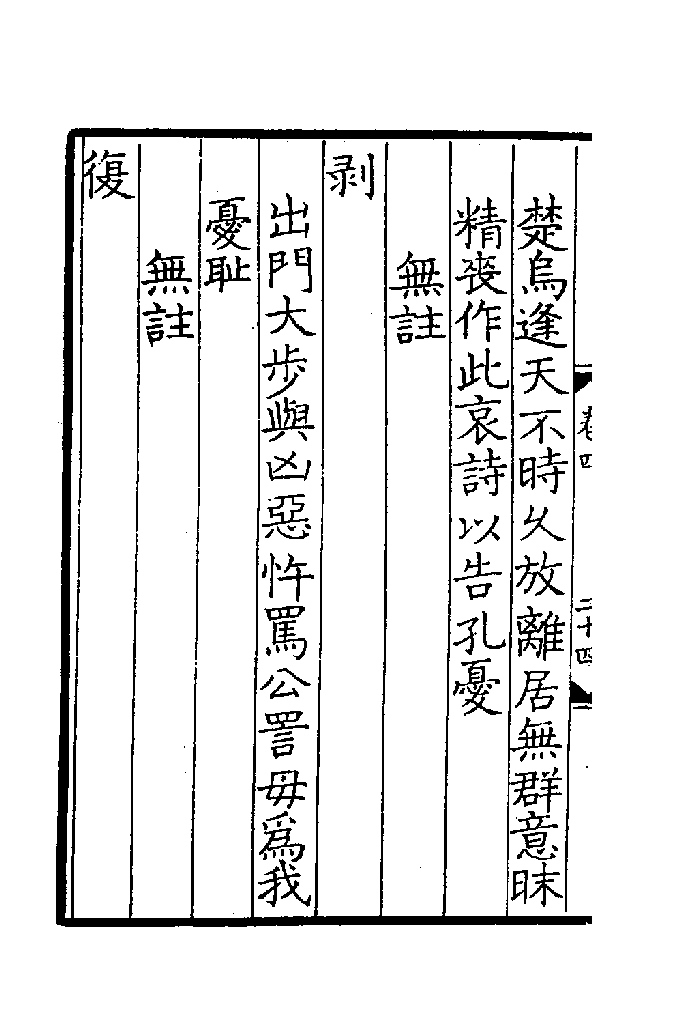 卷四 二十四
楚烏逢天不時久放離居無群意昧
精喪作此哀詩以告孔憂
無註
剥
出門大步與凶惡忤罵公詈毋為我
憂耻
無註
復